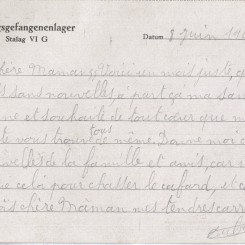 gsgefangenenlager
Stalag VI G
Datum 8 juin 19
chère Maman, Voici un mois juste, q
s sans nouvelles, à part ça ma san
ne et souhaite de tout cœur que m
te vous trouve tous de même. Donne moi d
de la famille et amis, car i
que cela pour chasser le cafard, et
chère Maman mes tendres car